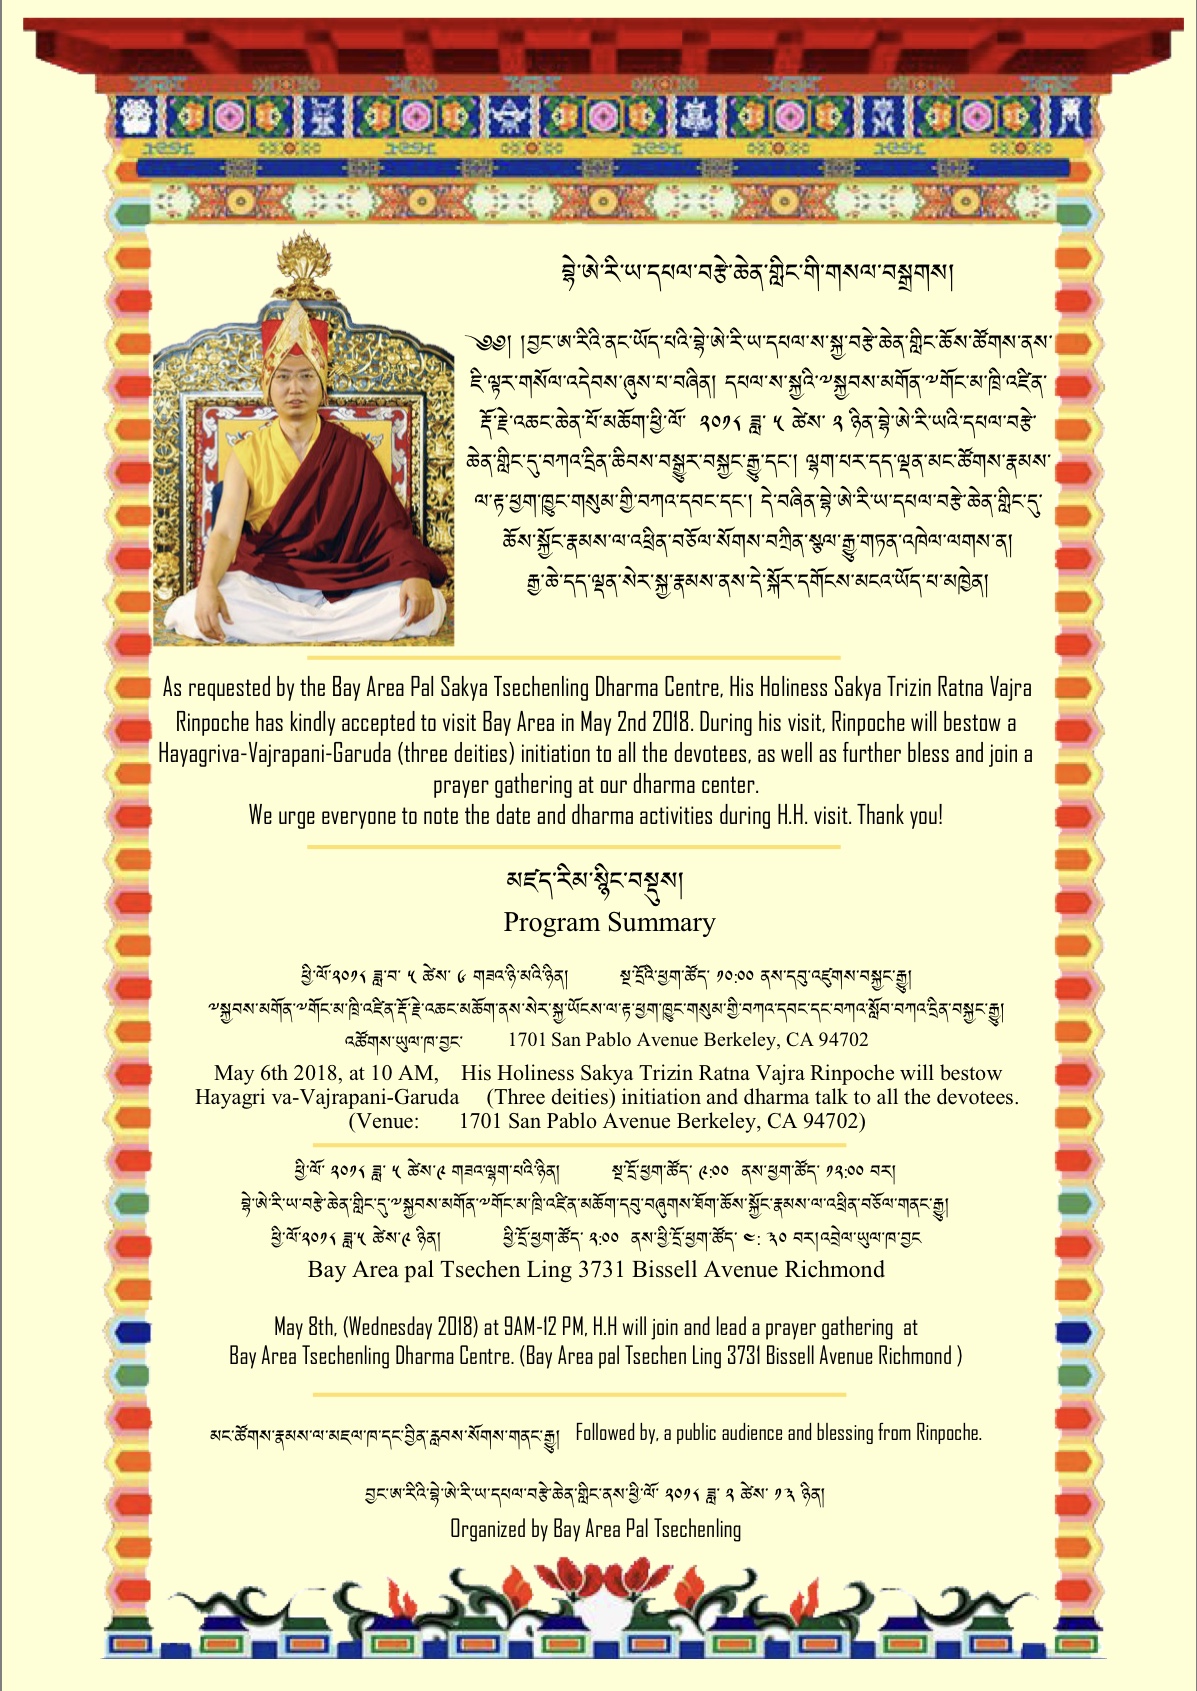 བྷེ་ཨེ་རི་ཡ་དཔལ་བརྩེ་ཆེན་གླིང་གི་གསལ་བསྒྲགས།
༄༅། །བྱང་ཨ་རིའི་ནང་ཡོད་པའི་བྷེ་ཨེ་རི་ཡ་དཔལ་ས་སྐྱ་བརྩེ་ཆེན་གླིང་ཆོས་ཚོགས་ནས་
ཇི་ལྟར་གསོལ་འདེབས་ཞུས་པ་བཞིན། དཔལ་ས་སྐྱའི་༸སྐྱབས་མགོན་༸གོང་མ་ཁྲི་འཛིན་
རྡོ་རྗེ་འཆང་ཆེན་པོ་མཆོག་ཕྱི་ལོ་ ༢༠༡༨ ཟླ་ ༥ ཚེས་ ༢ ཉིན་བྷེ་ཨེ་རི་ཡའི་དཔལ་བརྩེ་
ཆེན་གླིང་དུ་བཀའ་དྲིན་ཆིབས་བསྒྱུར་བསྐྱང་རྒྱུ་དང་། ལྷག་པར་དད་ལྡན་མང་ཚོགས་རྣམས་
ལ་རྟ་ཕྱག་ཁྱུང་གསུམ་གྱི་བཀའ་དབང་དང་། དེ་བཞིན་བྷེ་ཨེ་རི་ཡ་དཔལ་བརྩེ་ཆེན་གླིང་དུ་
ཆོས་སྐྱོང་རྣམས་ལ་འཕྲིན་བཅོལ་སོགས་བཀྲིན་སྩལ་རྒྱུ་གཏན་འཁེལ་ལགས་ན།
རྒྱ་ཆེ་དད་ལྡན་སེར་སྐྱ་རྣམས་ནས་དེ་སྐོར་དགོངས་མངའ་ཡོད་པ་མཁྱེན།
As requested by the Bay Area Pal Sakya Tsechenling Dharma Centre, His Holiness Sakya Trizin Ratna Vajra
Rinpoche has kindly accepted to visit Bay Area in May 2nd 2018. During his visit, Rinpoche will bestow a
Hayagriva-Vajrapani-Garuda (three deities) initiation to all the devotees, as well as further bless and join a
prayer gathering at our dharma center.
We urge everyone to note the date and dharma activities during H.H. visit. Thank you!
མཛད་རིམ་སྙིང་བསྡུས།
Program Summary
ཕྱི་ལོ་༢༠༡༨ ཟླ་བ་ ༥ ཚེས་ ༦ གཟའ་ཉི་མའི་ཉིན། སྔ་དྲོའི་ཕྱག་ཚོད་ ༡༠:༠༠ ནས་དབུ་འཛུགས་བསྐྱང་རྒྱུ།
༸སྐྱབས་མགོན་༸གོང་མ་ཁྲི་འཛིན་རྡོ་རྗེ་འཆང་མཆོག་ནས་སེར་སྐྱ་ཡོངས་ལ་རྟ་ཕྱག་ཁྱུང་གསུམ་གྱི་བཀའ་དབང་དང་བཀའ་སློབ་བཀའ་དྲིན་བསྐྱང་རྒྱུ།
འཚོགས་ཡུལ་ཁ་བྱང་ 1701 San Pablo Avenue Berkeley, CA 94702
May 6th 2018, at 10 AM, His Holiness Sakya Trizin Ratna Vajra Rinpoche will bestow
Hayagri va-Vajrapani-Garuda (Three deities) initiation and dharma talk to all the devotees.
(Venue: 1701 San Pablo Avenue Berkeley, CA 94702)
ཕྱི་ལོ་ ༢༠༡༨ ཟླ་ ༥ ཚེས་༩ གཟའ་ལྷག་པའི་ཉིན། སྔ་དྲོ་ཕྱག་ཚོད་ ༩:༠༠ ནས་ཕྱག་ཚོད་ ༡༢:༠༠ བར།
བྷེ་ཨེ་རི་ཡ་བརྩེ་ཆེན་གླིང་དུ་༸སྐྱབས་མགོན་༸གོང་མ་ཁྲི་འཛིན་མཆོག་དབུ་བཞུགས་ཐོག་ཆོས་སྐྱོང་རྣམས་ལ་འཕྲིན་བཅོལ་གནང་རྒྱུ།
ཕྱི་ལོ་༢༠༡༨ ཟླ་༥ ཚེས་༩ ཉིན། ཕྱི་དྲོ་ཕྱག་ཚོད་ ༢:༠༠ ནས་ཕྱི་དྲོ་ཕྱག་ཚོད་ ༤: ༣༠ བར།འབྲེལ་ཡུལ་ཁ་བྱང
Bay Area pal Tsechen Ling 3731 Bissell Avenue Richmond
May 8th, (Wednesday 2018) at 9AM-12 PM, H.H will join and lead a prayer gathering at
Bay Area Tsechenling Dharma Centre. (Bay Area pal Tsechen Ling 3731 Bissell Avenue Richmond )
མང་ཚོགས་རྣམས་ལ་མཇལ་ཁ་དང་བྱིན་རླབས་སོགས་གནང་རྒྱུ། Followed by, a public audience and blessing from Rinpoche.
བྱང་ཨ་རིའི་བྷེ་ཨེ་རི་ཡ་དཔལ་བརྩེ་ཆེན་གླིང་ནས་ཕྱི་ལོ་ ༢༠༡༨ ཟླ་ ༢ ཚེས་ ༡༣ ཉིན།
Organized by Bay Area Pal Tsechenling